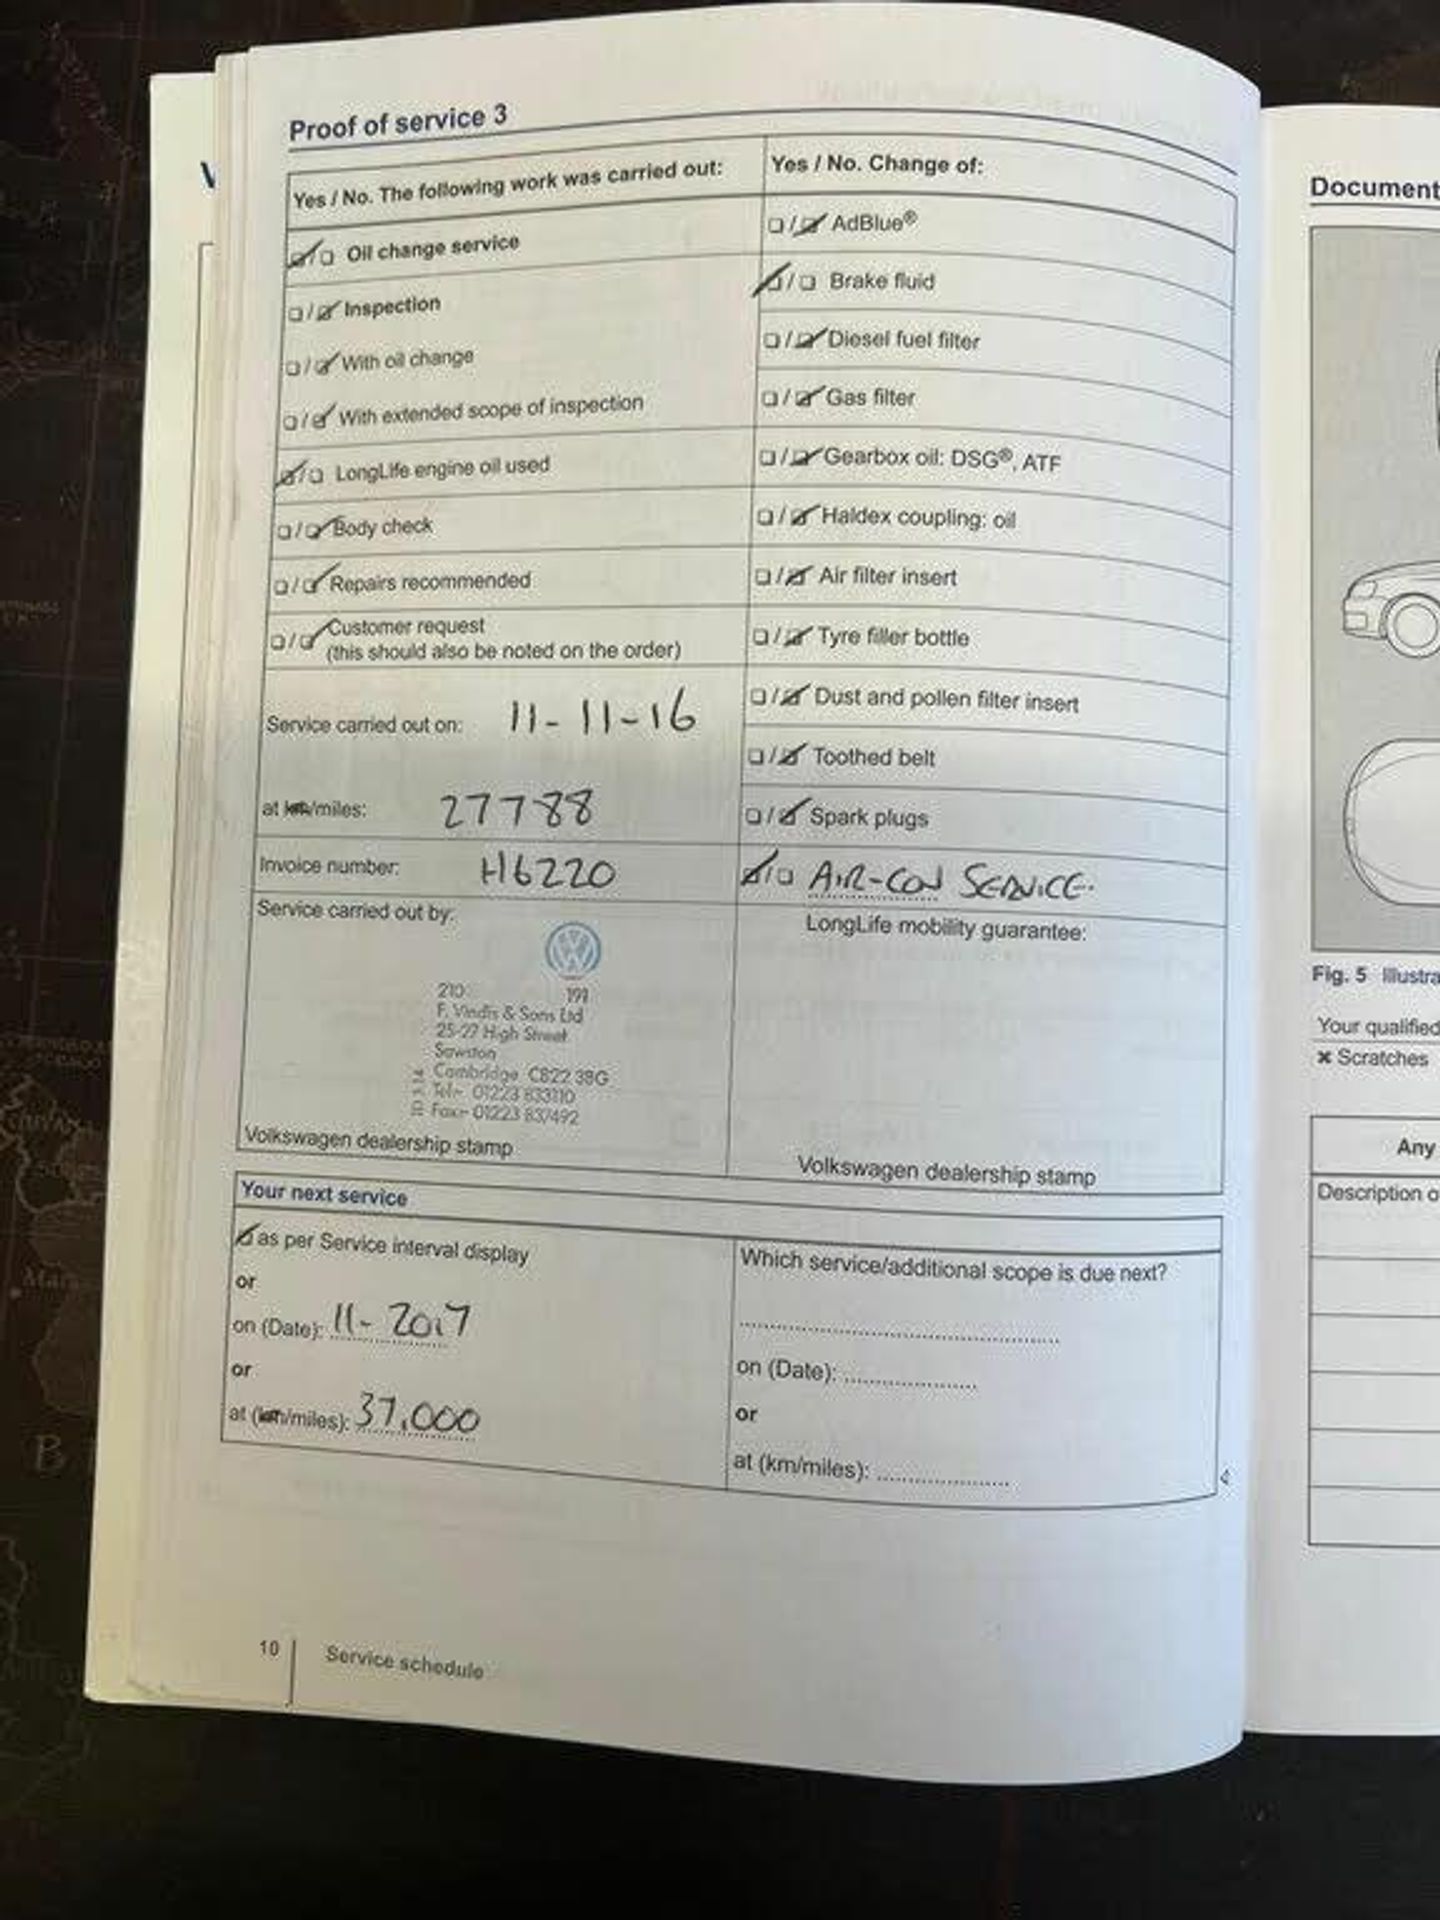 Proof of service 3
Yes / No. The following work was carried out:
Oil change service
Inspection
With oil change
With extended scope of inspection
LongLife engine oil used
Body check
Repairs recommended
Customer request
(this should also be noted on the order)
Service carried out on: 11-11-16
at km/miles: 27788
Invoice number: H6220
Service carried out by:
210 191
F. Vindis & Sons Ltd
25-27 High Street
Sawston
Cambridge CB22 3BG
Tel:- 01223 833110
Fax:- 01223 837492
Volkswagen dealership stamp
Yes / No. Change of:
AdBlue®
Brake fluid
Diesel fuel filter
Gas filter
Gearbox oil: DSG®, ATF
Haldex coupling: oil
Air filter insert
Tyre filler bottle
Dust and pollen filter insert
Toothed belt
Spark plugs
AIR-CON SERVICE.
LongLife mobility guarantee:
Volkswagen dealership stamp
Your next service
as per Service interval display
or
on (Date): 11-2017
or
at (km/miles): 37,000
Which service/additional scope is due next?
on (Date):
or
at (km/miles):
10 Service schedule
Document
Fig. 5 Illustra
Your qualified
× Scratches
Any
Description o